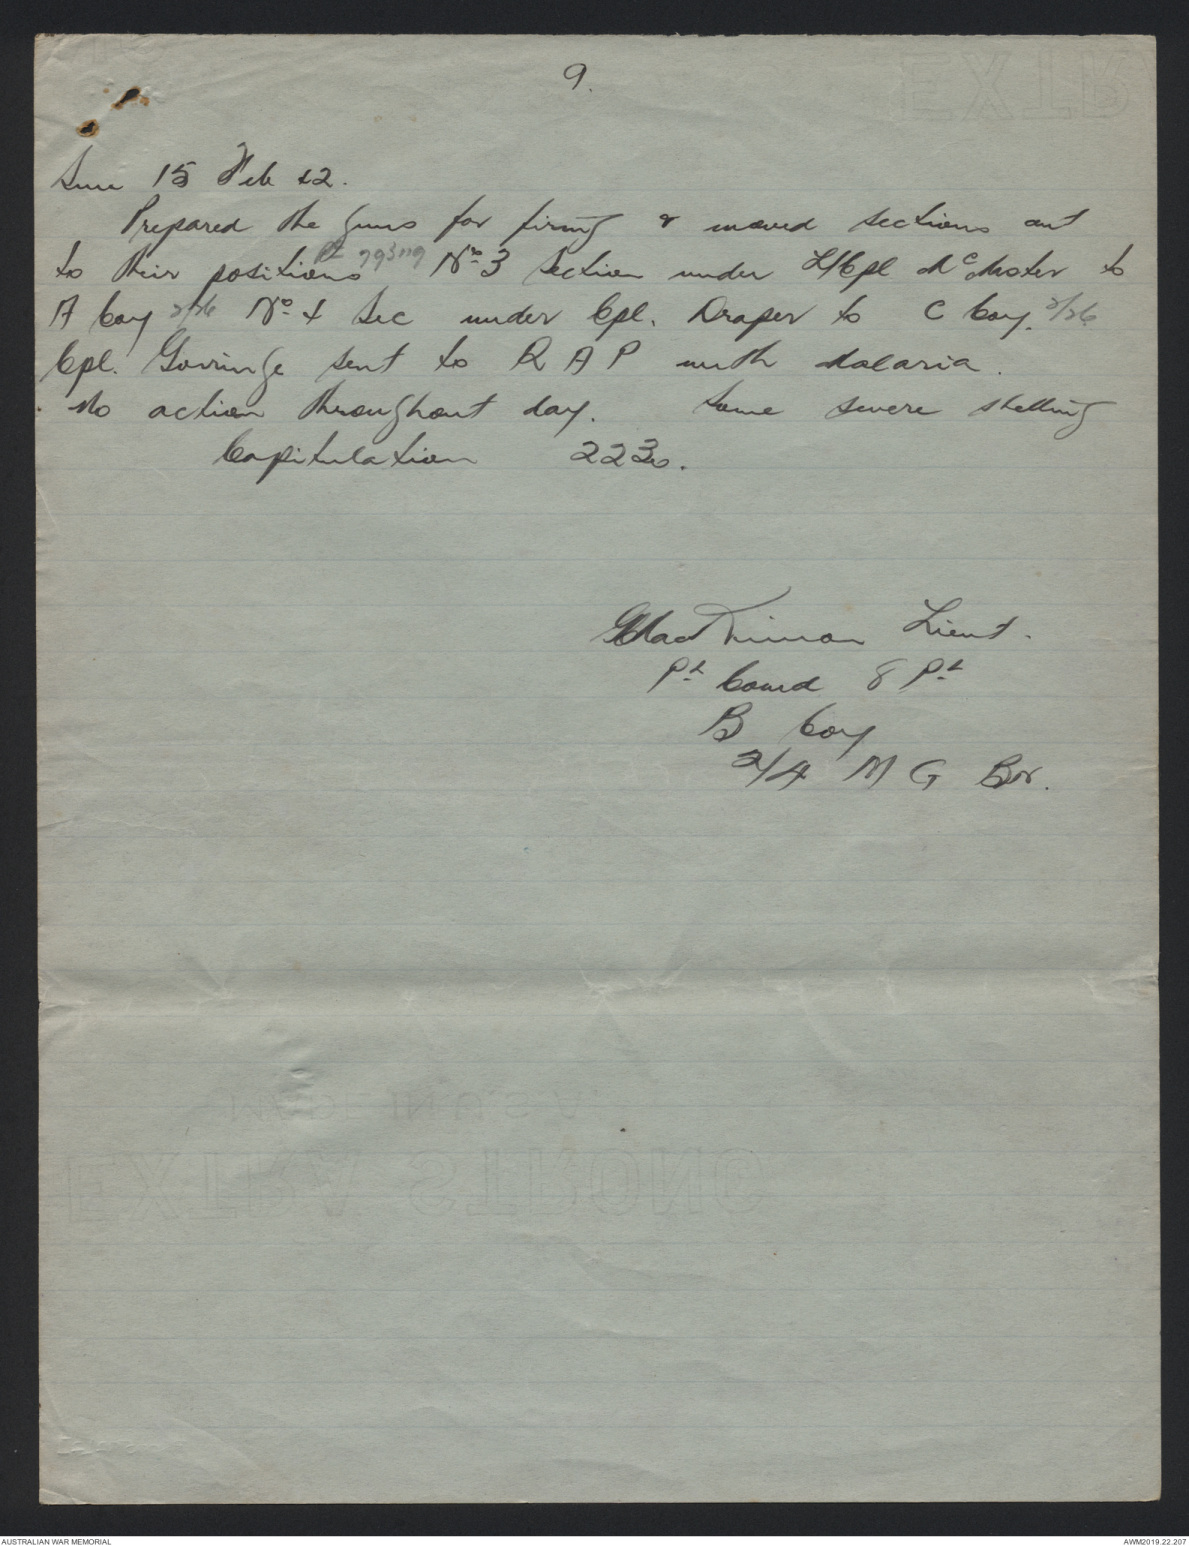 9.
Sun 15 Feb 42.
Prepared the guns for firing & moved sections out
to their positions Pt 793119 No 3 Section under L/Cpl McMaster to
A Coy 2/26 No 4 Sec under Cpl. Draper to C Coy. 2/26
Cpl. Gorringe sent to R A P with Malaria.
No action throughout day. Some severe shelling
Capitulation 2230.
MacKinnon Lieut.
Pl. Comd 8 Pl.
B Coy
2/4 M G Bn.
EXTRA
MADE IN U.S.A.
EXTRA STRONG
AUSTRALIAN WAR MEMORIAL
AWM2019.22.207